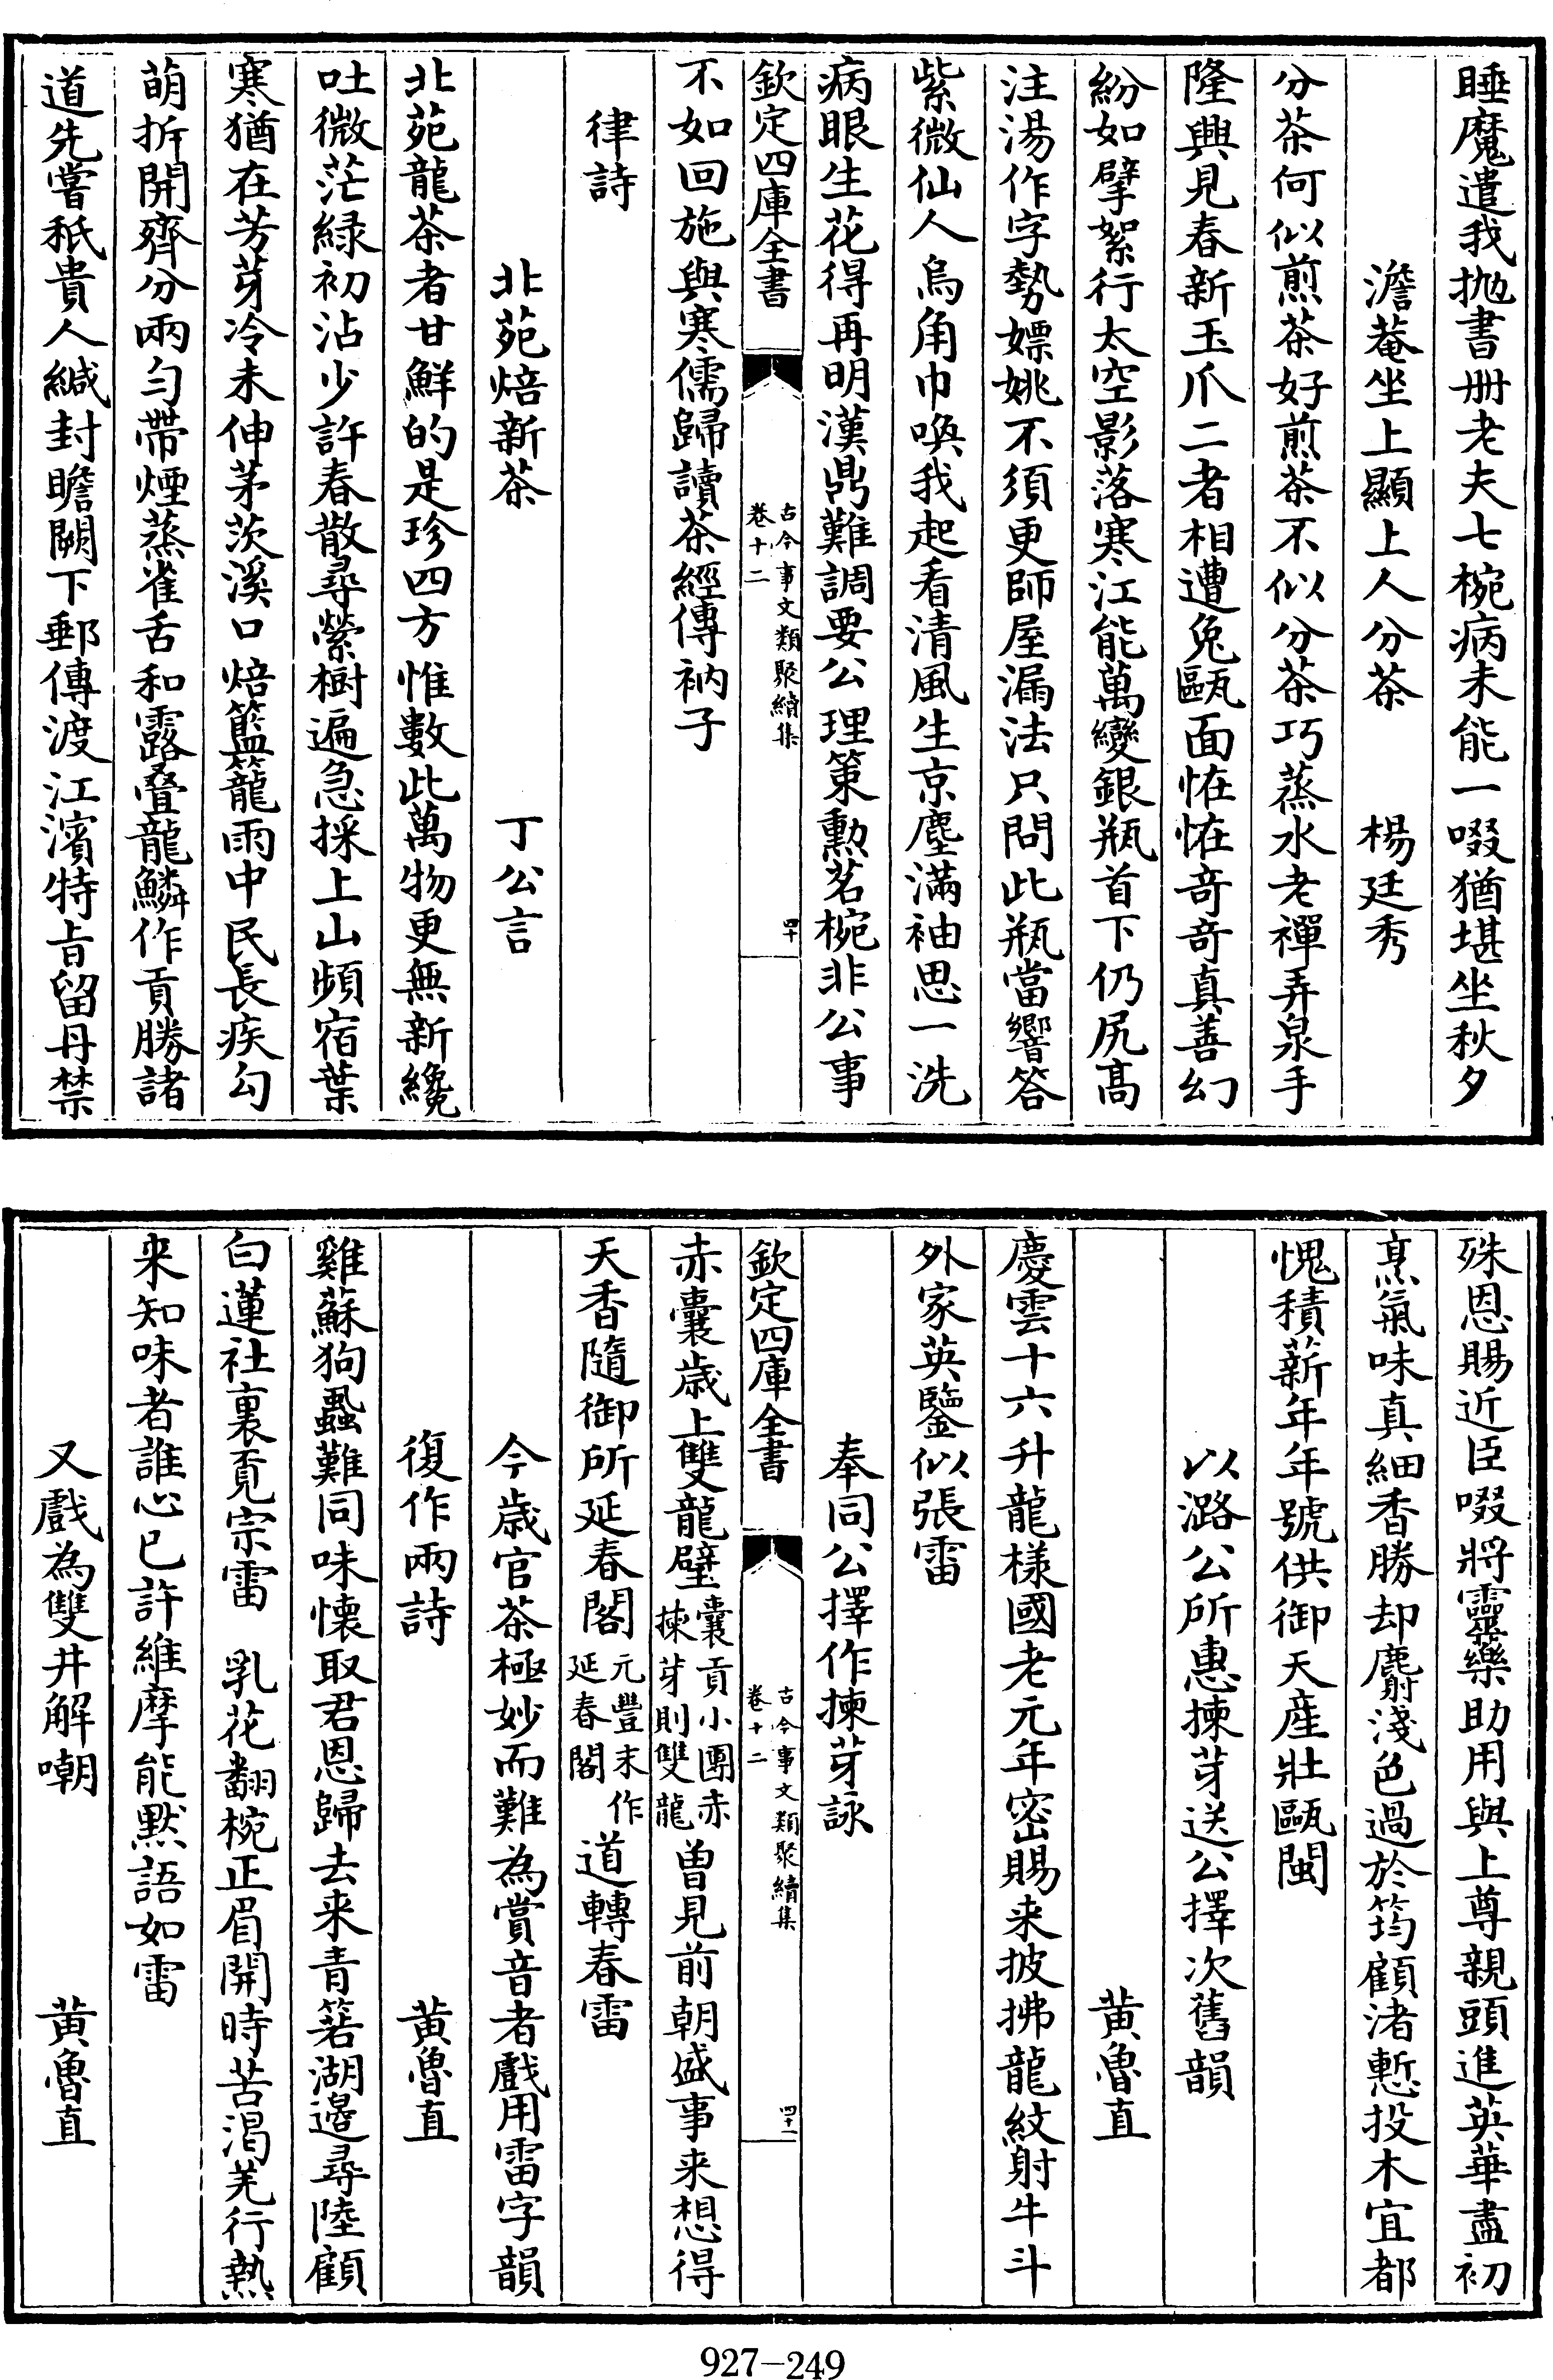 睡魔遣我抛書册老夫七椀病未能一啜猶堪坐秋夕
澹菴坐上顯上人分茶　楊廷秀
分茶何似煎茶好煎茶不似分茶巧蒸水老禪弄泉手
隆興見春新玉爪二者相遭兔甌面恠恠奇奇真善幻
紛如擘絮行太空影落寒江能萬變銀瓶首下仍尻高
注湯作字勢嫖姚不須更師屋漏法只問此瓶當響答
紫微仙人烏角巾喚我起看清風生京塵滿袖思一洗
病眼生花得再明漢鼎難調要公理策勲茗椀非公事
欽定四庫全書　古今事文類聚續集　卷十二　四十
不如回施與寒儒歸讀茶經傳衲子
律詩
北苑焙新茶　丁公言
北苑龍茶者甘鮮的是珍四方惟數此萬物更無新纔
吐微茫緑初沾少許春散尋縈樹遍急採上山頻宿葉
寒猶在芳芽冷未伸茅茨溪口焙籃籠雨中民長疾勾
萌拆開齊分兩勻帶煙蒸雀舌和露疊龍鱗作貢勝諸
道先嘗秪貴人緘封瞻闕下郵傳渡江濱特旨留丹禁
殊恩賜近臣啜將靈藥助用與上尊親頭進英華盡初
烹氣味真細香勝却麝淺色過於筠顧渚慙投木宜都
愧積薪年年號供御天産壯甌閩
以潞公所惠揀芽送公擇次舊韻
黄魯直
慶雲十六升龍樣國老元年密賜来披拂龍紋射牛斗
外家英鑒似張雷
奉同公擇作揀芽詠
欽定四庫全書　古今事文類聚續集　卷十二　四十一
赤囊歳上雙龍璧囊貢小團赤揀芽則雙龍曽見前朝盛事来想得
天香隨御所延春閣元豐末作延春閣道轉春雷
今歳官茶極妙而難為賞音者戲用雷字韻
復作兩詩　黄魯直
雞蘇狗蝨難同味懷取君恩歸去来青箬湖邉尋陸顧
白蓮社裏覓宗雷　乳花翻椀正眉開時苦渇羌行熱
来知味者誰心已許維摩能黙語如雷
又戲為雙井解嘲　黄魯直
927—249